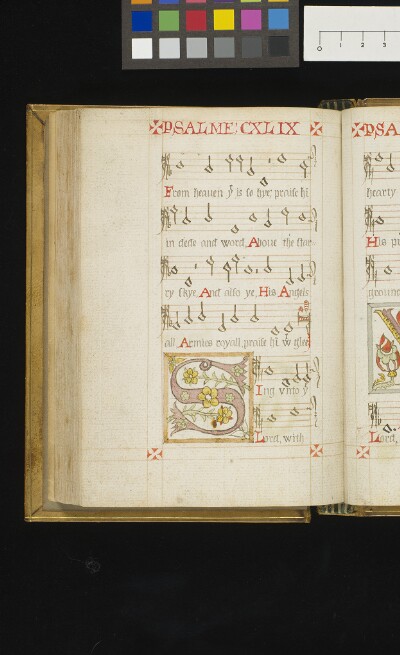 PSALME: CXLIX
From heaven yͭ is so hye: praise hī
in dede and word, Aboue the star
ry skye, And also ye, His Angels
all, Armies royall, praise hī wͭ glee
Sing vnto yͤ
Lord, with
PSA
hearty
His pr
ground
Lord,
0 1 2 3